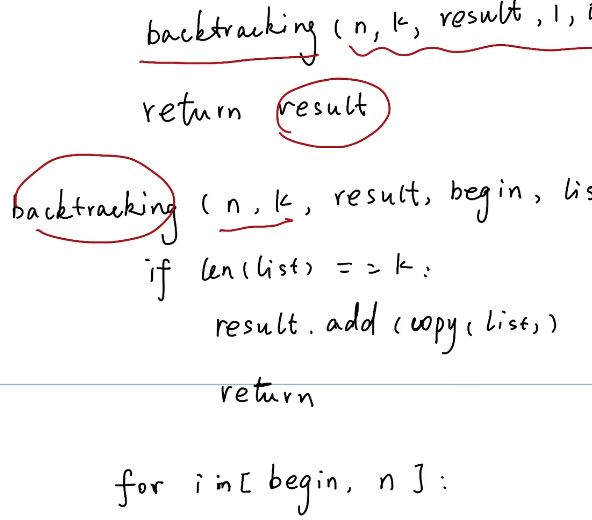 backtracking ( n, k, result , 1,
return result
backtracking ( n , k , result, begin , lis
if len(list) == k :
result . add ( copy ( list, )
return
for i in [ begin, n ] :